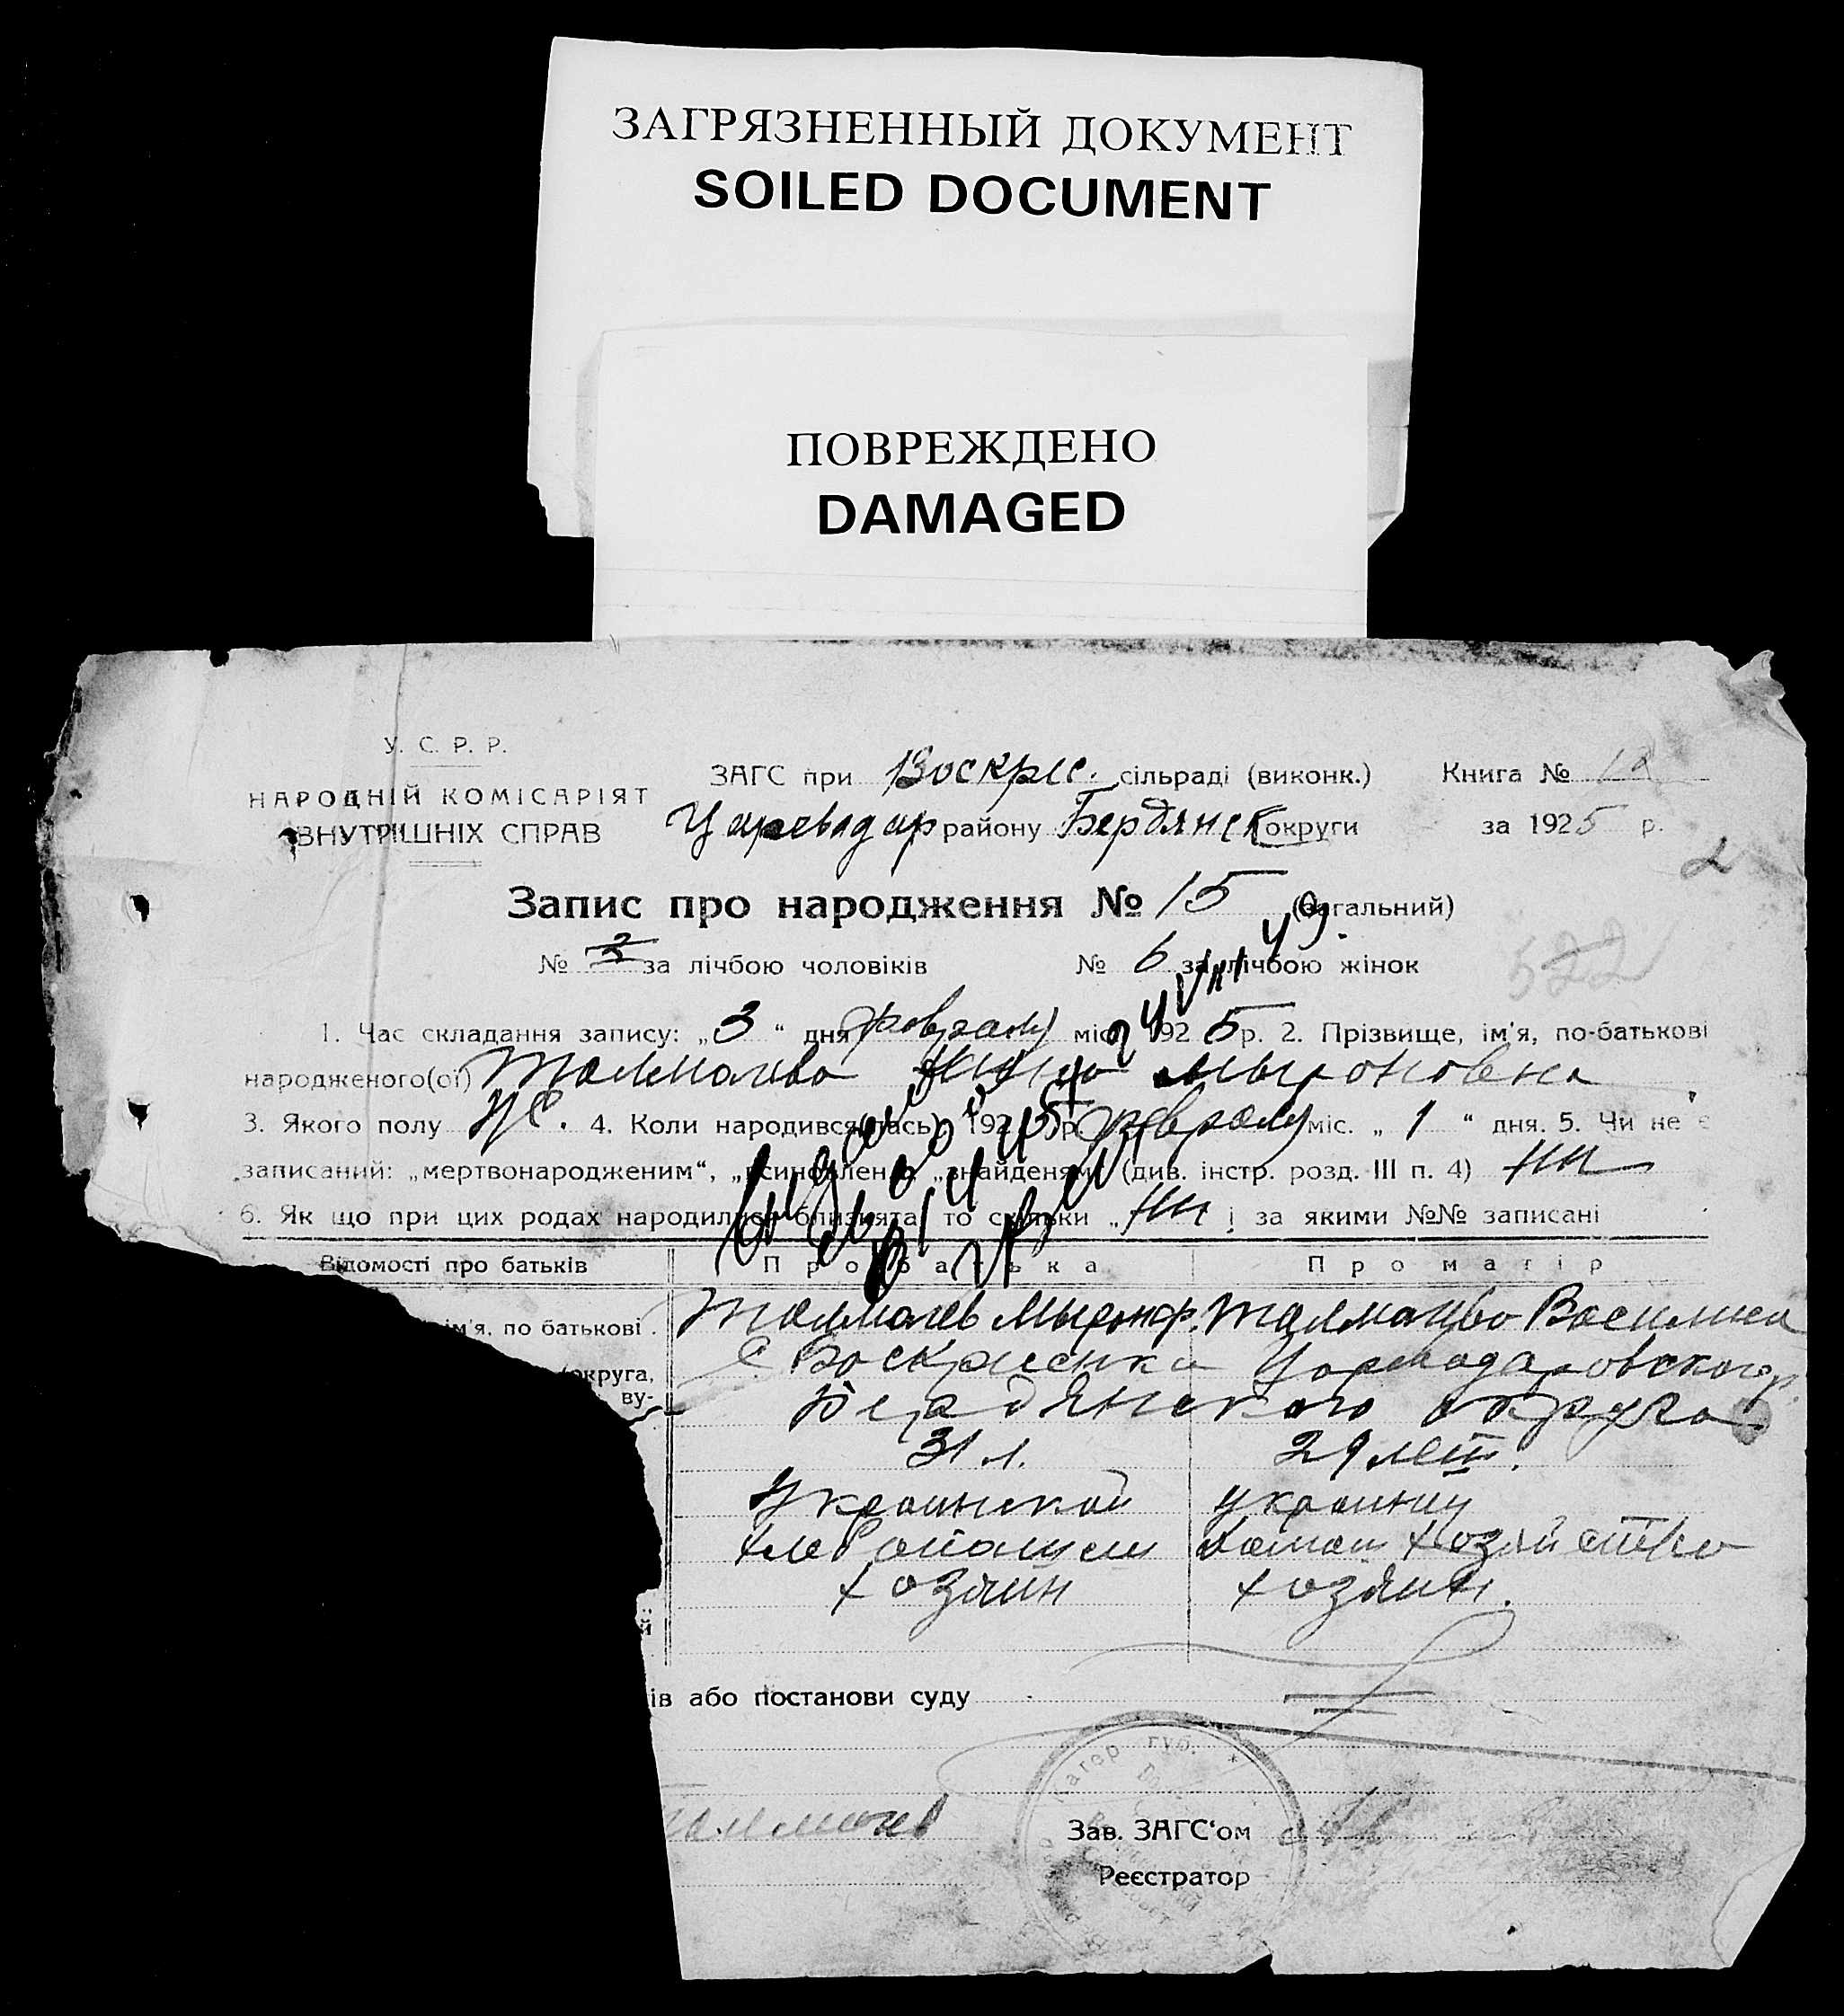 ЗАГРЯЗНЕННЫЙ ДОКУМЕНТ
SOILED DOCUMENT
ПОВРЕЖДЕНО
DAMAGED
У. С. Р. Р.
НАРОДНІЙ КОМІСАРІЯТ
ВНУТРІШНІХ СПРАВ
ЗАГС при Воскрес. сільраді (виконк.) Книга № 12
Царевадар району Бердянск округи за 1925 р.
2
Запис про народження № 15 (загальний)
№ за лічбою чоловіків № 6 за лічбою жінок
522
1. Час складання запису: „3“ дня февраля міс. 1925 р. 2. Прізвище, ім'я, по-батькові
народженого(ої) Толмачева Мыроновна
3. Якого полу Ж. 4. Коли народився(лась) 1925 р. февраля міс. „1“ дня. 5. Чи не є
записаний: „мертвонародженим“, „всиновленим“, „знайденям“ (див. інстр. розд. III п. 4) нет
6. Як що при цих родах народилися близнята, то скільки „нет і за якими №№ записані
Відомості про батьків Про батька Про матір
ім'я, по батькові . Толмачев Мырон Толмачева Василиса
округа, С Воскресенка Царевадаровского р.
ву- Бердянского округа
31 л. 29 лет.
Украинской украинц
хлебопашец домаш хозяйство
хозяин хозяин.
й
ів або постанови суду
Толмачев Зав. ЗАГС'ом
Реєстратор